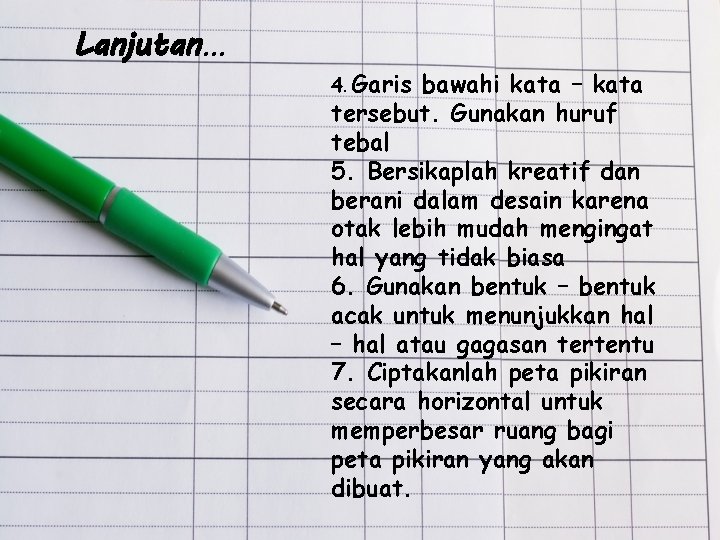 Lanjutan...
4. Garis bawahi kata – kata
tersebut. Gunakan huruf
tebal
5. Bersikaplah kreatif dan
berani dalam desain karena
otak lebih mudah mengingat
hal yang tidak biasa
6. Gunakan bentuk – bentuk
acak untuk menunjukkan hal
– hal atau gagasan tertentu
7. Ciptakanlah peta pikiran
secara horizontal untuk
memperbesar ruang bagi
peta pikiran yang akan
dibuat.